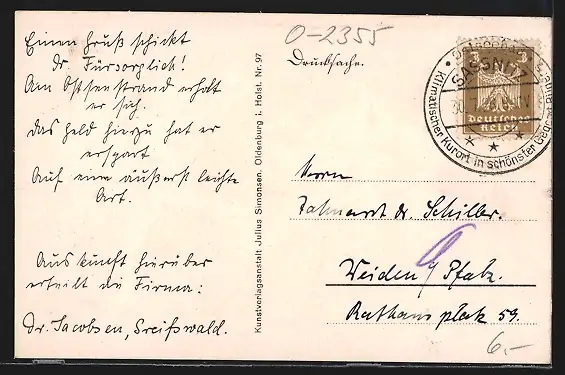 O-2355
Einen Gruß schickt
dr. Fürsorglich!
Am Ostseestrand erholt
er sich.
Das Geld hierzu hat er
erspart
Auf eine äußerst leichte
Art.
Auskunft hierüber
erteilt die Firma:
Dr. Jacobsen, Greifswald.
Kunstverlagsanstalt Julius Simonsen, Oldenburg i. Holst. Nr. 97
Drucksache.
SASSNITZ
Klimatischer Kurort in schönster Gegend
3 3
Deutsches
Reich
Herrn
Zahnarzt dr. Schiller.
Weiden / Pfalz.
Rathausplatz 59.
6,-